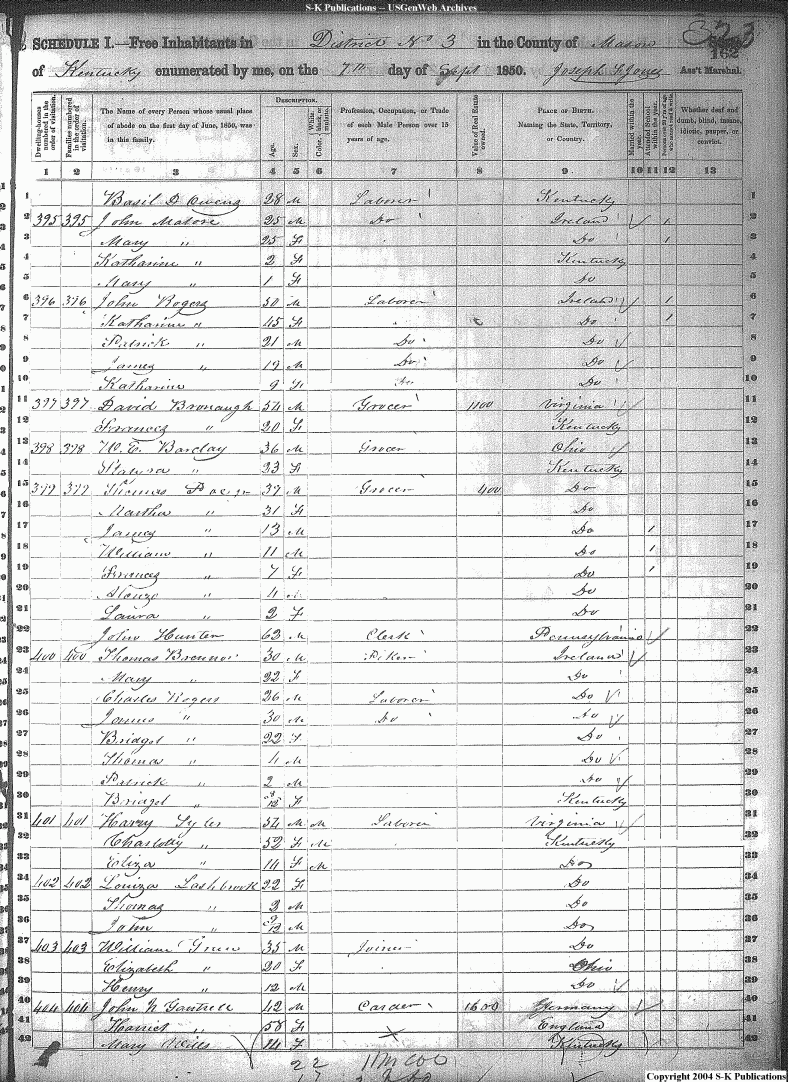 S-K Publications -- USGenWeb Archives
823
162
SCHEDULE I.—Free Inhabitants in District No 3 in the County of Mason
of Kentucky enumerated by me, on the 7th day of Sept 1850. Joseph F Jones Ass't Marshal.
Dwelling-houses numbered in the order of visitation.
Families numbered in the order of visitation.
The Name of every Person whose usual place of abode on the first day of June, 1850, was in this family.
DESCRIPTION.
Age.
Sex.
Color, White, black, or mulatto.
Profession, Occupation, or Trade of each Male Person over 15 years of age.
Value of Real Estate owned.
PLACE OF BIRTH. Naming the State, Territory, or Country.
Married within the year.
Attended School within the year.
Persons over 20 y'rs of age who cannot read & write.
Whether deaf and dumb, blind, insane, idiotic, pauper, or convict.
1 2 3 4 5 6 7 8 9 10 11 12 13
1 Basil D Owens 28 M Laborer Kentucky 1
2 395 395 John Malone 25 M Do Ireland 1 2
3 Mary " 25 F Do 1 3
4 Katharine " 2 F Kentucky 4
5 Mary " 1 F Do 5
6 396 396 John Rogers 50 M Laborer Ireland 1 6
7 Katharine " 45 F Do 1 7
8 Patrick " 21 M Do Do 8
9 James " 19 M Do Do 9
10 Katharine 9 F Do Do 10
11 397 397 David Bronaugh 54 M Grocer 1100 Virginia 11
12 Frances " 20 F Kentucky 12
13 398 398 W. E. Barclay 36 M Grocer Ohio 13
14 " 23 F Kentucky 14
15 399 399 Thomas 39 M Grocer 400 Do 15
16 Martha " 31 F Do 16
17 James " 13 M Do 1 17
18 William " 11 M Do 1 18
19 Frances " 7 F Do 1 19
20 Alonzo " 4 Do 20
21 Laura " 2 F Do 21
22 John Hunter 62 M Clerk Pennsylvania 22
23 400 400 Thomas 30 M Piker Ireland 23
24 Mary " 22 F Do 24
25 Charles Rogers 26 M Laborer Do 25
26 James " 30 M Do Do 26
27 Bridget " 22 F Do 27
28 Thomas " 4 M Do 28
29 Patrick " 2 M Do 29
30 Bridget " F Kentucky 30
31 401 401 Harry Tyler 54 M M Laborer Virginia 31
32 " 52 F M Kentucky 32
33 Eliza " 14 F M Do 33
34 402 402 Louiza Lashbrook 22 F Do 34
35 Thomas " 2 M Do 35
36 John " 9/12 M Do 36
37 403 403 William Green 35 M Joiner Do 37
38 Elizabeth " 20 F Ohio 38
39 Henry " 12 M Do 39
40 404 404 John N Gantrell 42 M Carder 1600 Germany 40
41 Harriet " 58 F England 41
42 Mary Wills 14 F Kentucky 42
22
Copyright 2004 S-K Publications